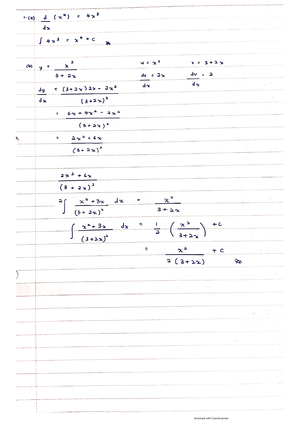 1.(a) d/dx (x⁴) = 4x³
∫ 4x³ = x⁴ + C
(b) y = x²/(3+2x)   u = x²   v = 3+2x
du/dx = 2x   dv/dx = 2
dy/dx = ((3+2x)2x - 2x²)/(3+2x)²
= (6x + 4x² - 2x²)/(3+2x)²
= (2x² + 6x)/(3+2x)²
(2x² + 6x)/(3+2x)²
2∫ (x² + 3x)/(3+2x)² dx = x²/(3+2x)
∫ (x² + 3x)/(3+2x)² dx = 1/2 (x²/(3+2x)) + C
= x²/(2(3+2x)) + C
Scanned with CamScanner